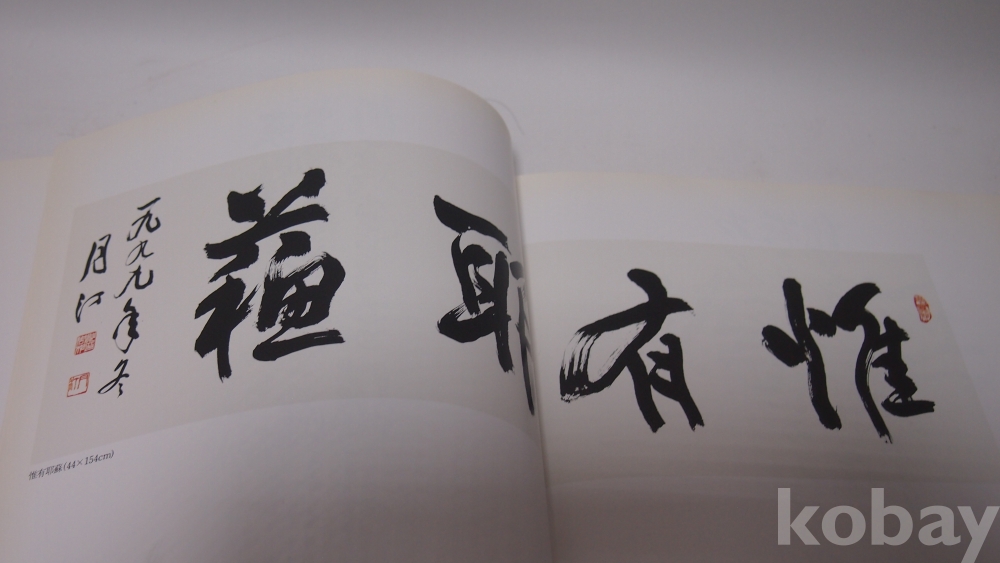 惟有耶蘇
一九九九年冬
月汀
惟有耶蘇(44×154cm)
kobay